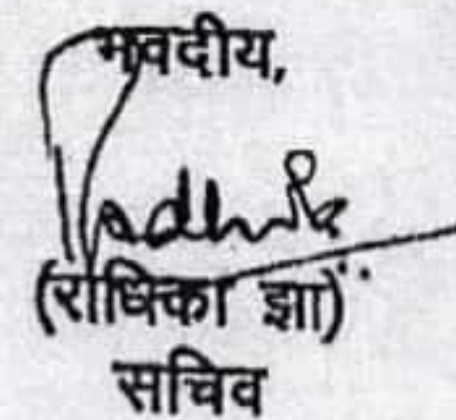 भवदीय,
Radhika
(राधिका झा)
सचिव